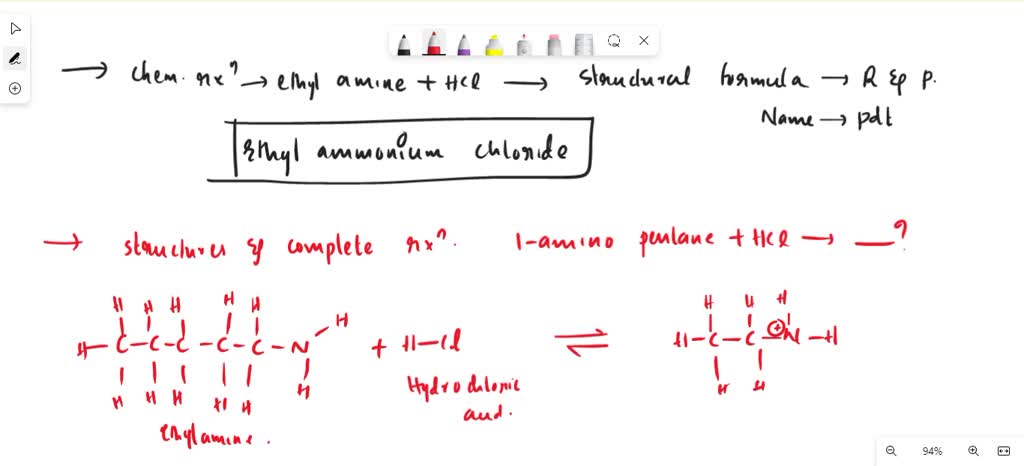 → chem. rxn → ethyl amine + HCl → structural formula → R & p.
Name → pdt
Ethyl ammonium chloride
→ structures & complete rxn. 1-amino pentane + HCl → __?
H H H H H H H H
H-C-C-C-C-C-N + H-Cl ⇌ H-C-C-⊕N-H
H H H H H H H H
Hydrochloric
acid.
ethylamine.
94%